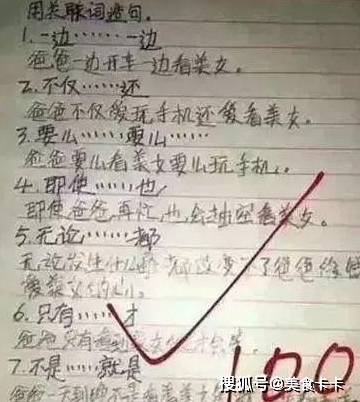 用关联词造句。
1.一边……一边
爸爸一边开车一边看美女。
2.不仅……还
爸爸不仅爱玩手机还爱看美女。
3.要么……要么……
爸爸要么看美女要么玩手机。
4.即使……也
即使爸爸再忙,也会抽空看美女。
5.无论……都
无论发生什么 都改变不了爸爸
6.只有……才
爸爸只有看到美女 才会笑。
7.不是……就是
爸爸 不是看美女
100
搜狐号@美食卡卡